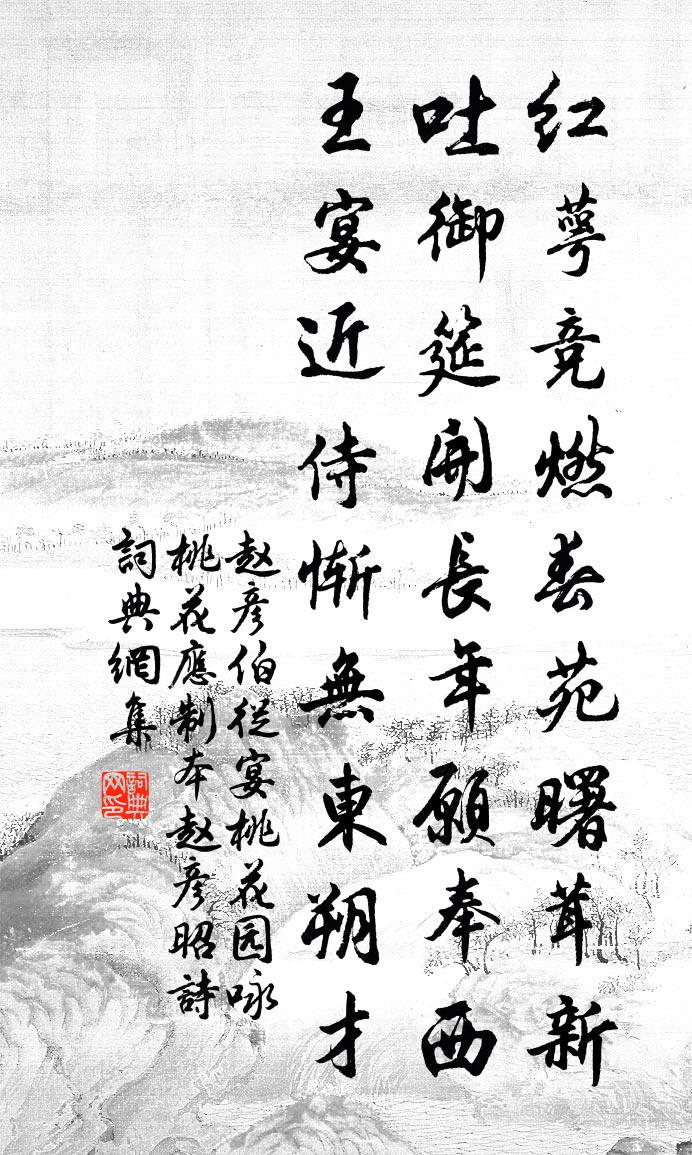 红萼竞燃春苑曙茸新
吐御筵開長年願奉西
王宴近侍惭無東朔才
赵彦伯從宴桃花园咏
桃花應制本赵彦昭詩
詞典網集
詞典网印